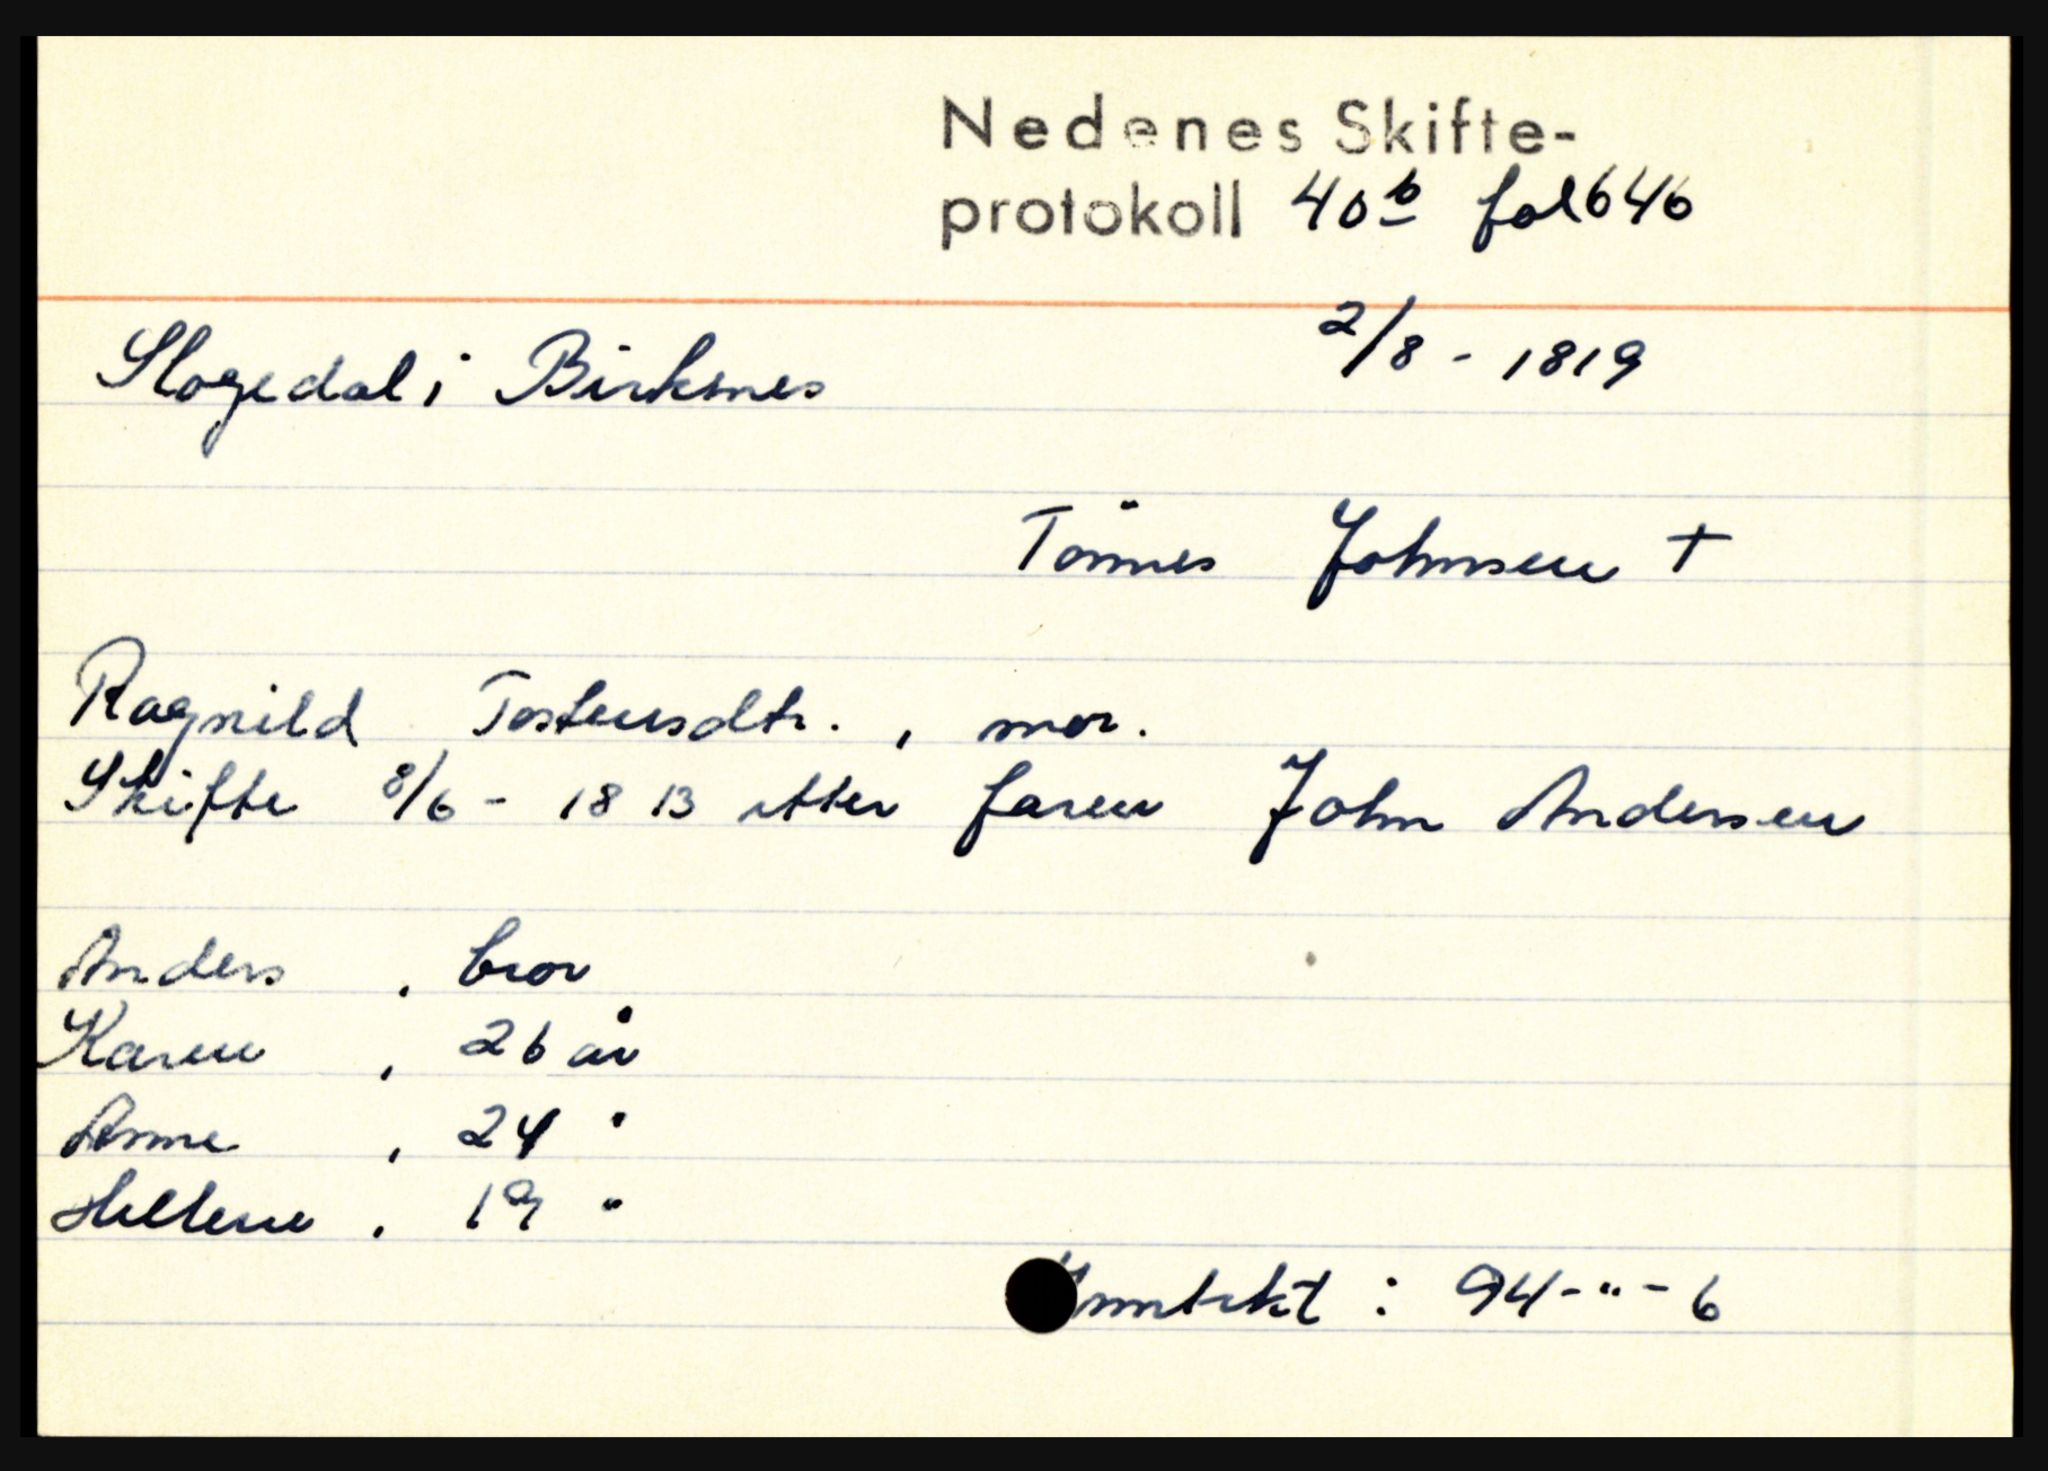 Nedenes Skifte-
protokoll 40b fol 646
2/8 - 1819
Slogedal i Birkenes
Tönnes Johnsen +
Ragnild Tostensdtr., mor.
Skifte 8/6 - 1813 etter faren John Andersen
Anders, bror
Karen, 26 år
Anne, 24 "
Hellene, 19 "
Inntekt : 94-"-6